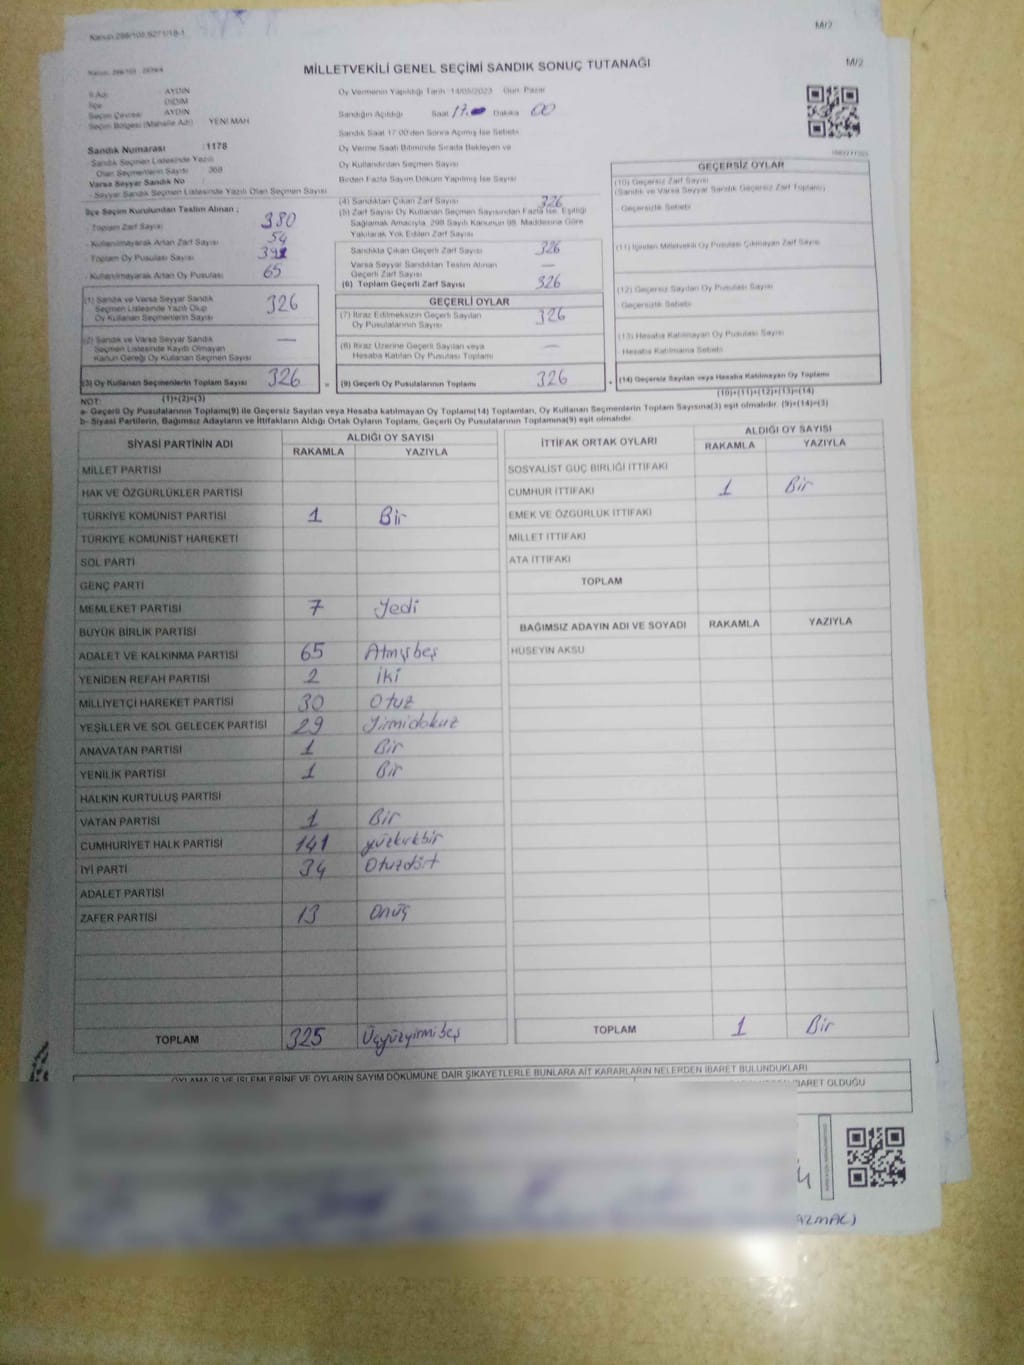 M/2
M/2
MİLLETVEKİLİ GENEL SEÇİMİ SANDIK SONUÇ TUTANAĞI
İl Adı : AYDIN
İlçe DİDİM
Seçim Çevresi AYDIN
Seçim Bölgesi (Mahalle Adı) YENİ MAH
Sandık Numarası : 1178
Sandık Seçmen Listesinde Yazılı
Olan Seçmenlerin Sayısı : 368
Varsa Seyyar Sandık No
- Seyyar Sandık Seçmen Listesinde Yazılı Olan Seçmen Sayısı
İlçe Seçim Kurulundan Teslim Alınan ;
- Toplam Zarf Sayısı 380
- Kullanılmayarak Artan Zarf Sayısı 54
- Toplam Oy Pusulası Sayısı
- Kullanılmayarak Artan Oy Pusulası 65
(1) Sandık ve Varsa Seyyar Sandık
Seçmen Listesinde Yazılı Olup
Oy Kullanan Seçmenlerin Sayısı 326
(2) Sandık ve Varsa Seyyar Sandık
Seçmen Listesinde Kayıtlı Olmayan
Kanun Gereği Oy Kullanan Seçmen Sayısı —
(3) Oy Kullanan Seçmenlerin Toplam Sayısı 326
Oy Vermenin Yapıldığı Tarih: 14/05/2023 Gün: Pazar
Sandığın Açıldığı Saat 17. Dakika 00
Sandık Saat 17:00'den Sonra Açılmış İse Sebebi
Oy Verme Saati Bitiminde Sırada Bekleyen ve
Oy Kullandırılan Seçmen Sayısı
Birden Fazla Sayım Döküm Yapılmış İse Sayısı
(4) Sandıktan Çıkan Zarf Sayısı 326
(5) Zarf Sayısı Oy Kullanan Seçmen Sayısından Fazla İse, Eşitliği
Sağlamak Amacıyla, 298 Sayılı Kanunun 98. Maddesine Göre
Yakılarak Yok Edilen Zarf Sayısı
Sandıkta Çıkan Geçerli Zarf Sayısı 326
Varsa Seyyar Sandıktan Teslim Alınan
Geçerli Zarf Sayısı —
(6) Toplam Geçerli Zarf Sayısı 326
GEÇERLİ OYLAR
(7) İtiraz Edilmeksizin Geçerli Sayılan
Oy Pusulalarının Sayısı 326
(8) İtiraz Üzerine Geçerli Sayılan veya
Hesaba Katılan Oy Pusulası Toplamı —
= (9) Geçerli Oy Pusulalarının Toplamı 326
GEÇERSİZ OYLAR
(10) Geçersiz Zarf Sayısı
(Sandık ve Varsa Seyyar Sandık Geçersiz Zarf Toplamı)
Geçersizlik Sebebi
(11) İçinden Milletvekili Oy Pusulası Çıkmayan Zarf Sayısı
(12) Geçersiz Sayılan Oy Pusulası Sayısı
Geçersizlik Sebebi
(13) Hesaba Katılmayan Oy Pusulası Sayısı
Hesaba Katılmama Sebebi
+ (14) Geçersiz Sayılan veya Hesaba Katılmayan Oy Toplamı
NOT: (1)+(2)=(3) (10)+(11)+(12)+(13)=(14)
a- Geçerli Oy Pusulalarının Toplamı(9) ile Geçersiz Sayılan veya Hesaba katılmayan Oy Toplamı(14) Toplamları, Oy Kullanan Seçmenlerin Toplam Sayısına(3) eşit olmalıdır. (9)+(14)=(3)
b- Siyasi Partilerin, Bağımsız Adayların ve İttifakların Aldığı Ortak Oyların Toplamı, Geçerli Oy Pusulalarının Toplamına(9) eşit olmalıdır.
SİYASİ PARTİNİN ADI ALDIĞI OY SAYISI
RAKAMLA YAZIYLA
MİLLET PARTİSİ
HAK VE ÖZGÜRLÜKLER PARTİSİ
TÜRKİYE KOMÜNİST PARTİSİ 1 Bir
TÜRKİYE KOMÜNİST HAREKETİ
SOL PARTİ
GENÇ PARTİ
MEMLEKET PARTİSİ 7 Yedi
BÜYÜK BİRLİK PARTİSİ
ADALET VE KALKINMA PARTİSİ 65 Atmışbeş
YENİDEN REFAH PARTİSİ 2 İki
MİLLİYETÇİ HAREKET PARTİSİ 30 Otuz
YEŞİLLER VE SOL GELECEK PARTİSİ 29 Yirmidokuz
ANAVATAN PARTİSİ 1 Bir
YENİLİK PARTİSİ 1 Bir
HALKIN KURTULUŞ PARTİSİ
VATAN PARTİSİ 1 Bir
CUMHURİYET HALK PARTİSİ 141 yüzkırkbir
İYİ PARTİ 34 Otuzdört
ADALET PARTİSİ
ZAFER PARTİSİ 13 Onüç
TOPLAM 325 Üçyüzyirmibeş
İTTİFAK ORTAK OYLARI ALDIĞI OY SAYISI
RAKAMLA YAZIYLA
SOSYALİST GÜÇ BİRLİĞİ İTTİFAKI
CUMHUR İTTİFAKI 1 Bir
EMEK VE ÖZGÜRLÜK İTTİFAKI
MİLLET İTTİFAKI
ATA İTTİFAKI
TOPLAM
BAĞIMSIZ ADAYIN ADI VE SOYADI RAKAMLA YAZIYLA
HÜSEYİN AKSU
TOPLAM 1 Bir
OYLAMA İŞ VE İŞLEMLERİNE VE OYLARIN SAYIM DÖKÜMÜNE DAİR ŞİKAYETLERLE BUNLARA AİT KARARLARIN NELERDEN İBARET BULUNDUKLARI
İBARET OLDUĞU